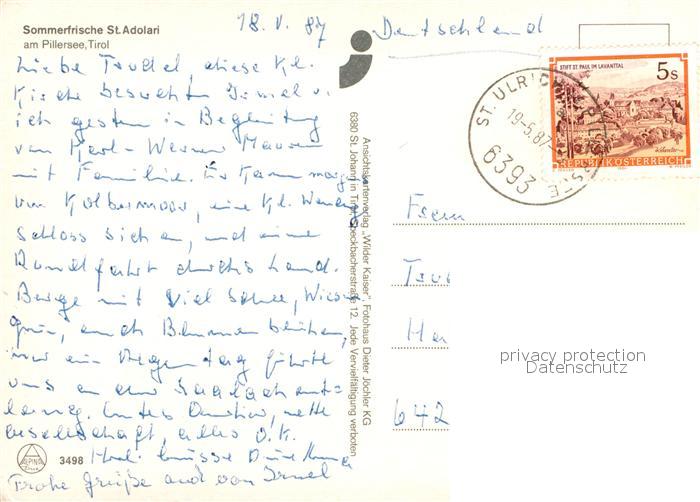 Sommerfrische St. Adolari
am Pillersee, Tirol
18. V. 87
Deutschland
Liebe Trudel, diese Kl.
Kirche besuchten Irmel u.
ich gestern in Begleitung
von Karl-Werner Maurer
mit Familie. Er kam morgens
von Kolbermoor, eine Kl. Wanderg
schloss sich an, und eine
Rundfahrt durchs Land.
Berge mit viel Schnee, Wiesen
grün, auch Blumen blühen,
nur ein Regentag führte
uns an der Saalach ent=
lang. Gutes Quartier, nette
Gesellschaft, alles O.K.
Herzl. Grüsse Deine
Frohe Grüße auch von Irmel
ALPINA
3498
Ansichtskartenverlag „Wilder Kaiser", Fotohaus Dieter Jöchler KG
6380 St. Johann in Tirol, Speckbacherstraße 12. Jede Vervielfältigung verboten
STIFT ST. PAUL IM LAVANTTAL
5s
REPUBLIK ÖSTERREICH
ST. ULRICH AM PILLERSEE
19.-5.87
6393
Frau
Tru
Ha
642
privacy protection
Datenschutz